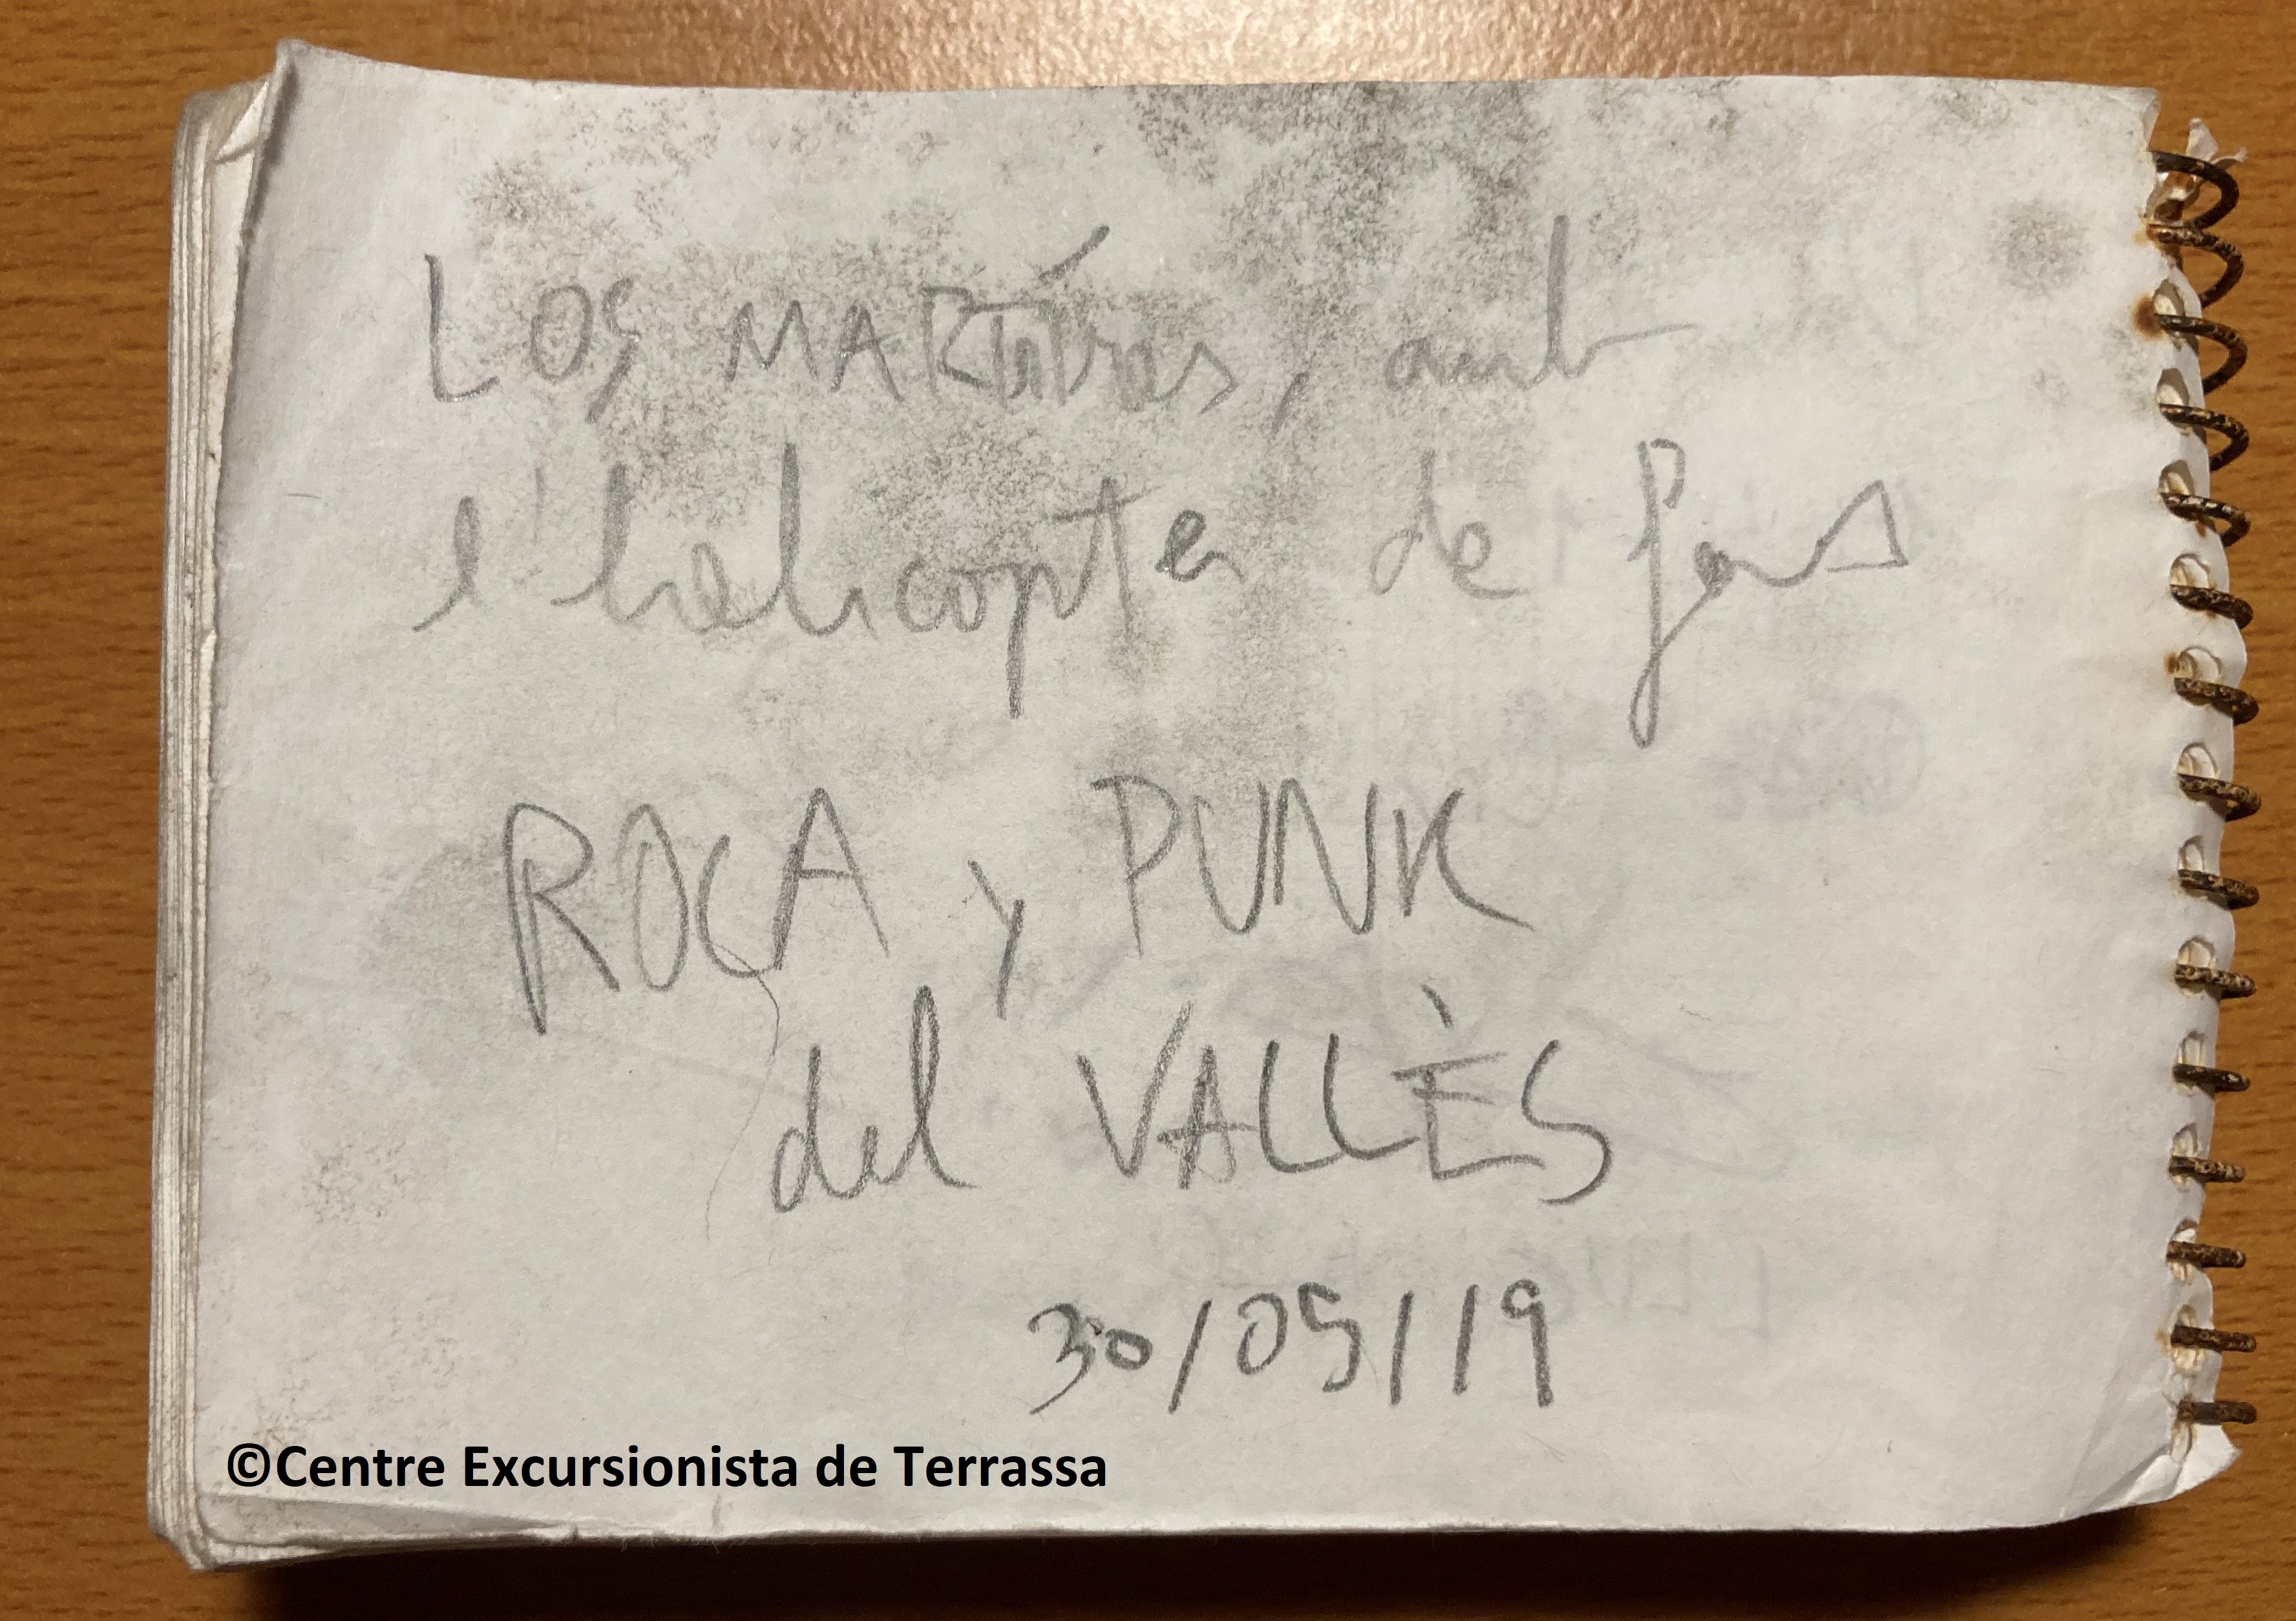 LOS MARtires, amb
l'helicopter de fons
ROCA y PUNK
del VALLÈS
30/05/19
©Centre Excursionista de Terrassa